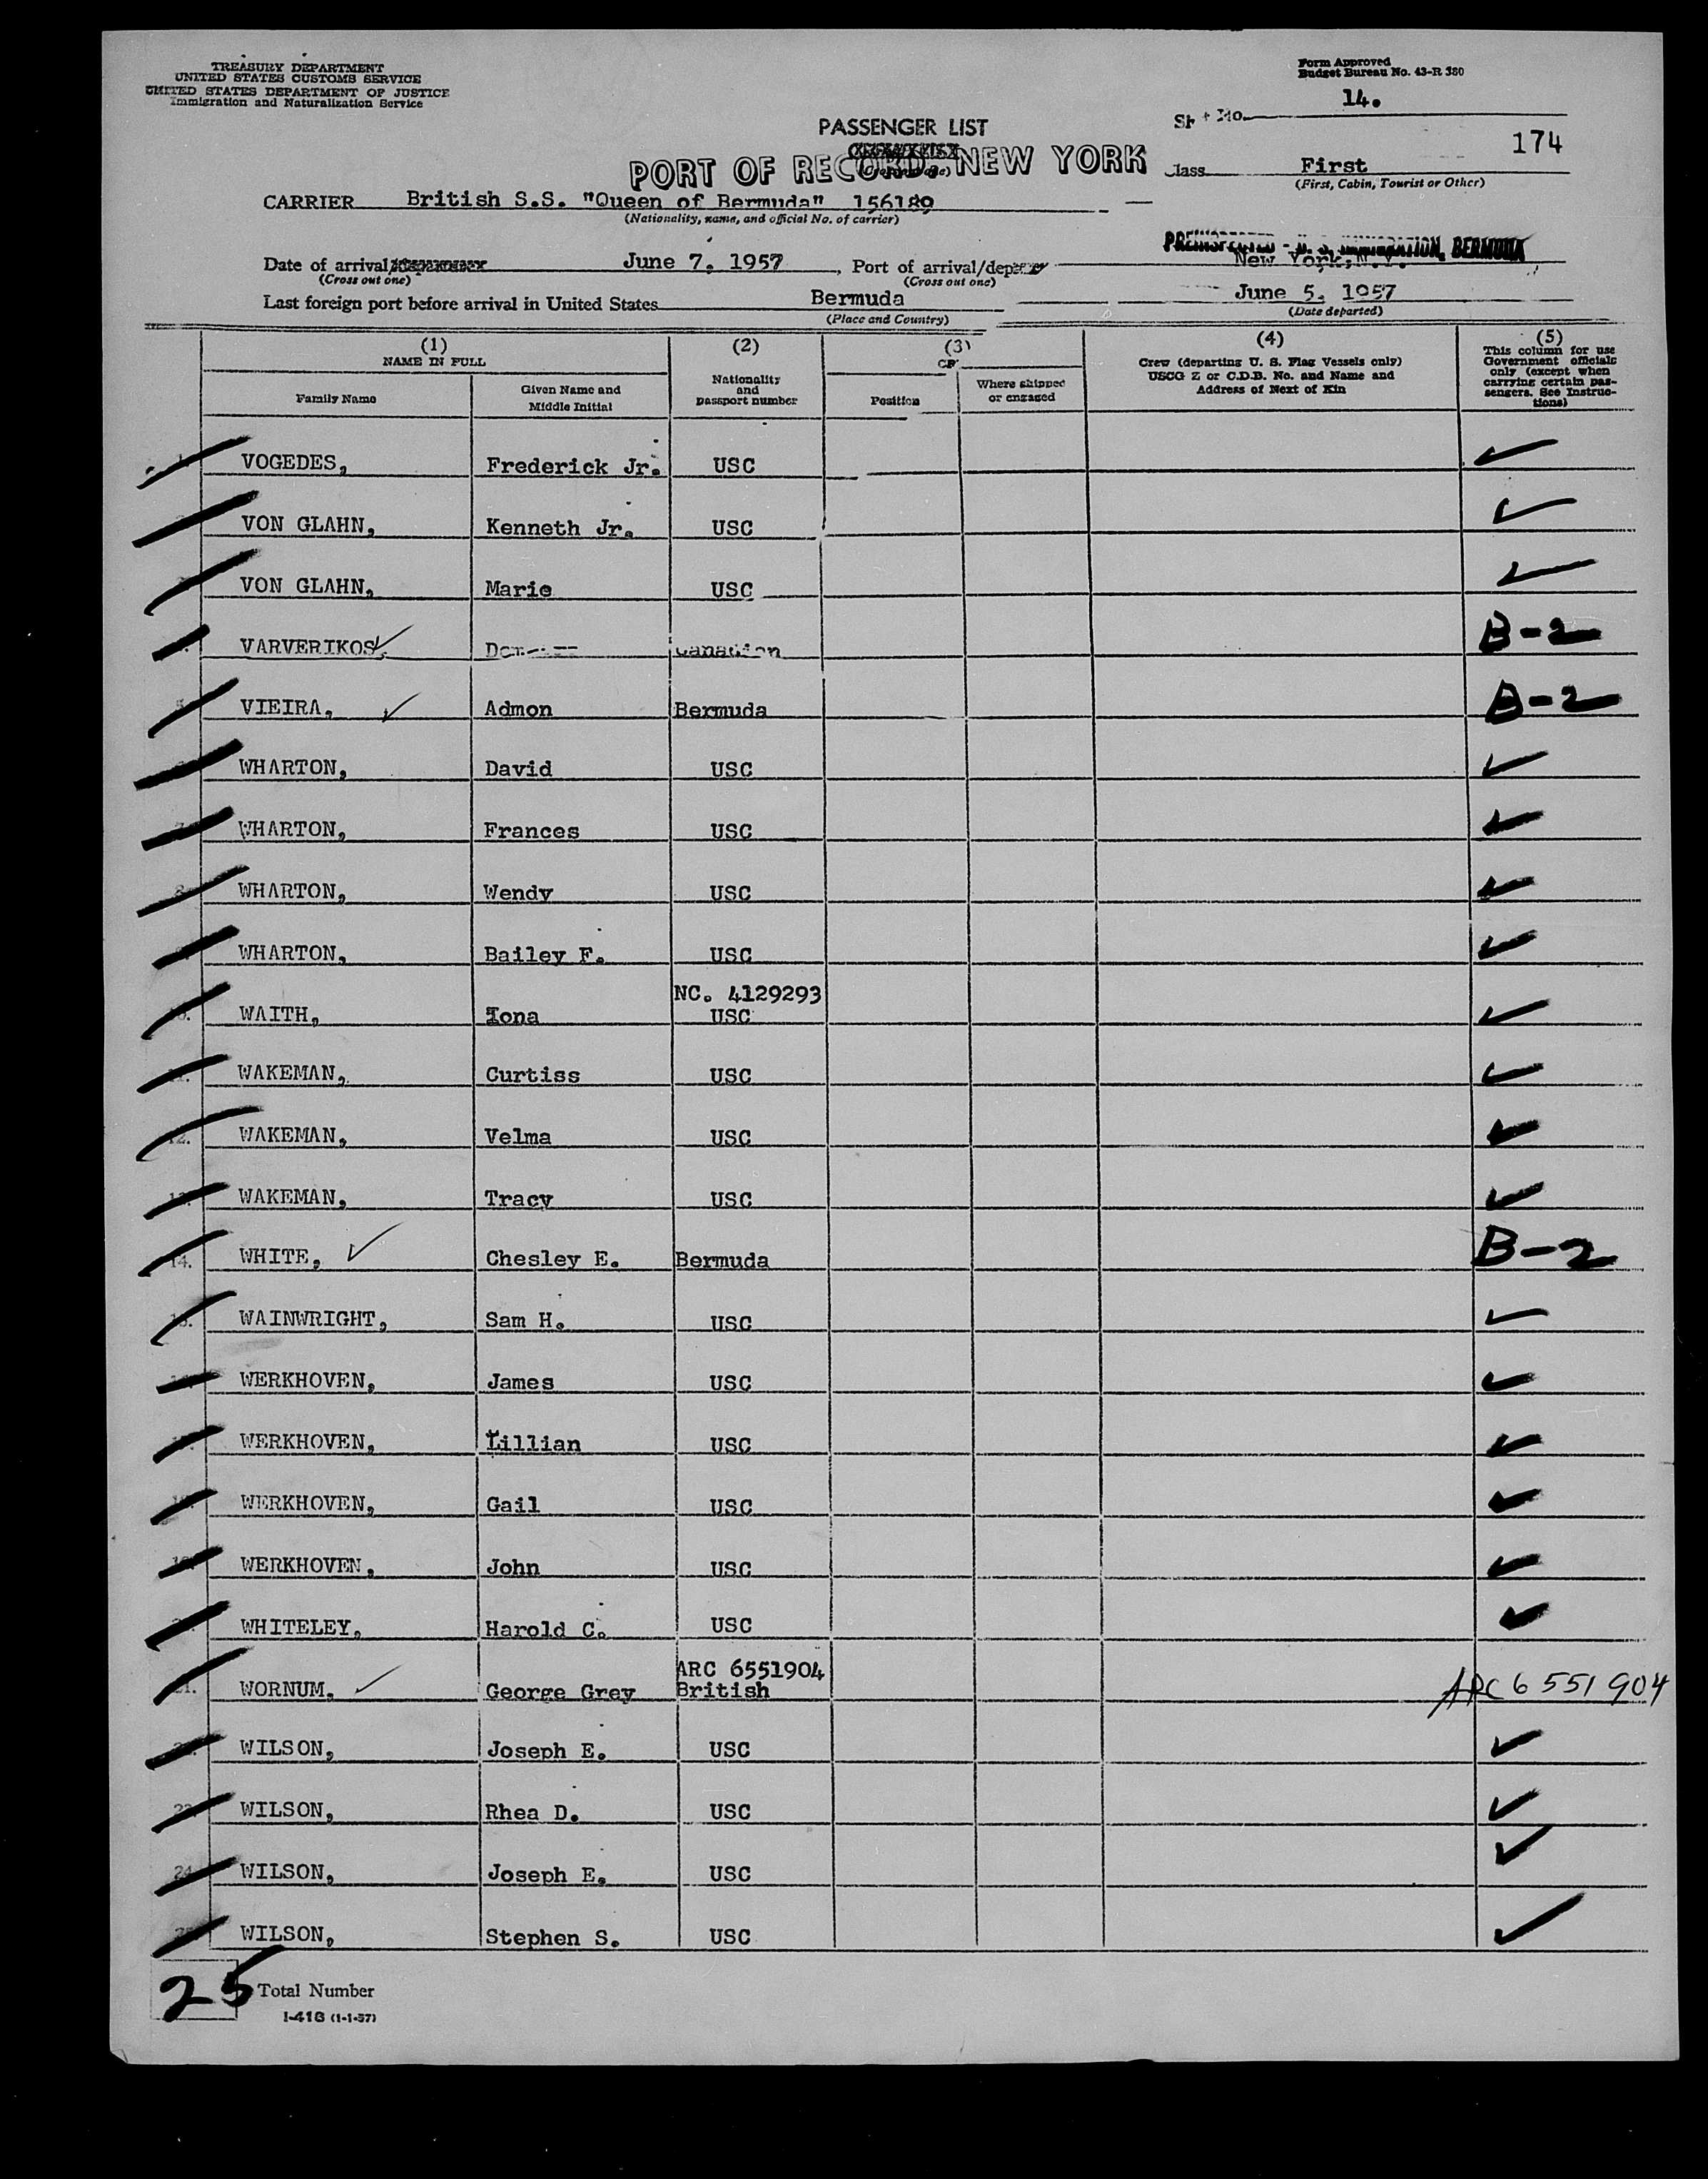 TREASURY DEPARTMENT
UNITED STATES CUSTOMS SERVICE
UNITED STATES DEPARTMENT OF JUSTICE
Immigration and Naturalization Service
Form Approved
Budget Bureau No. 43-R 380
No. 14.
PASSENGER LIST
174
PORT OF RECORD. NEW YORK
Class First
(First, Cabin, Tourist or Other)
CARRIER British S.S. "Queen of Bermuda" 156189
(Nationality, name, and official No. of carrier)
PREINSPECTED - U. S. IMMIGRATION, BERMUDA
Date of arrival June 7, 1957, Port of arrival/ New York, N.Y.
(Cross out one) (Cross out one)
Last foreign port before arrival in United States Bermuda June 5, 1957
(Place and Country) (Date departed)
(1) (2) (3) (4) (5)
NAME IN FULL
Family Name
Given Name and Middle Initial
Nationality and passport number
Position
Where shipped or engaged
Crew (departing U. S. Flag Vessels only)
USCG Z or C.D.B. No. and Name and
Address of Next of Kin
This column for use
Government officials
only (except when
carrying certain pas-
sengers. See Instruc-
tions)
VOGEDES, Frederick Jr. USC
VON GLAHN, Kenneth Jr. USC
VON GLAHN, Marie USC
VARVERIKOS Canadian B-2
5. VIEIRA, Admon Bermuda B-2
WHARTON, David USC
7. WHARTON, Frances USC
8. WHARTON, Wendy USC
WHARTON, Bailey F. USC
NC. 4129293
10. WAITH, Iona USC
11. WAKEMAN, Curtiss USC
12. WAKEMAN, Velma USC
13. WAKEMAN, Tracy USC
14. WHITE, Chesley E. Bermuda B-2
15. WAINWRIGHT, Sam H. USC
WERKHOVEN, James USC
WERKHOVEN, Lillian USC
WERKHOVEN, Gail USC
19. WERKHOVEN, John USC
WHITELEY, Harold C. USC
ARC 6551904
21. WORNUM, George Grey British ARC 6551904
WILSON, Joseph E. USC
23. WILSON, Rhea D. USC
24. WILSON, Joseph E. USC
25. WILSON, Stephen S. USC
25 Total Number
I-418 (1-1-57)